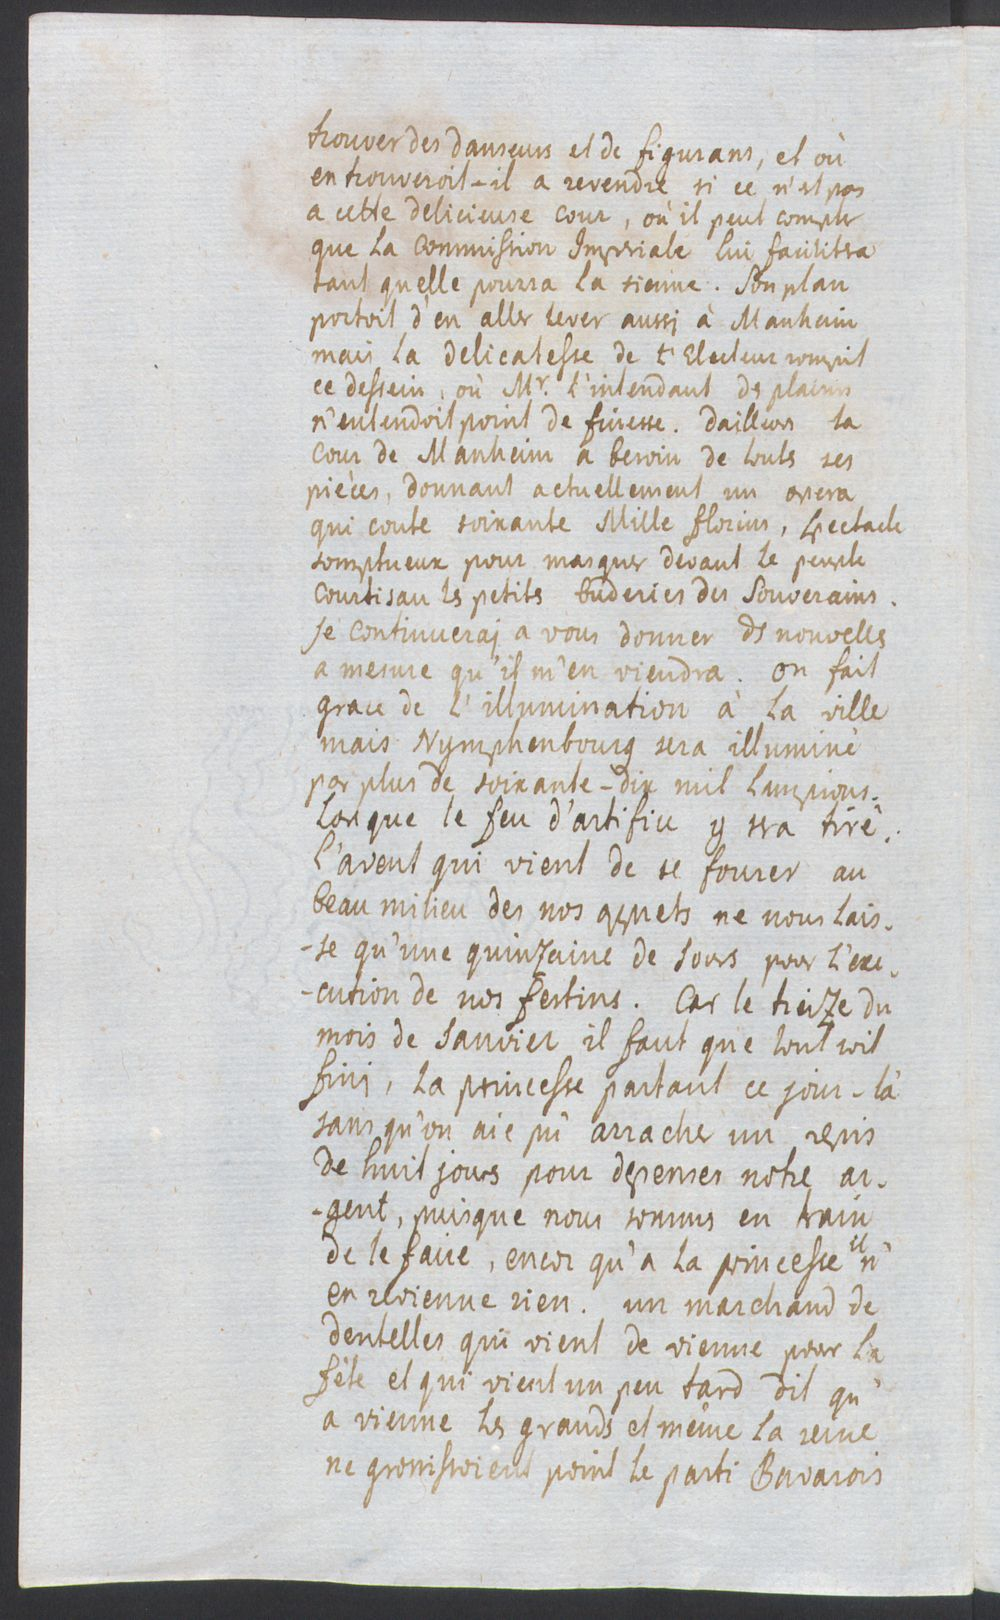 trouver des danseurs et de figurans, et où
en trouveroit-il a revendre si ce n'est pas
a cette delicieuse cour, où il peut compter
que la Commission Imperiale lui facilitera
tant quelle pourra la sienne. Son plan
portoit d'en aller lever aussj à Manheim
mais la delicatesse de l'Electeur rompit
ce dessein, où Mr. l'intendant ds plaisirs
n'entendoit point de finesse. dailleurs la
Cour de Manheim a besoin de touts ses
pièces, donnant actuellement un opera
qui coute soixante Mille florins, spectacle
somptueux pour masquer devant le peuple
Courtisan ls petits buderies des Souverains.
Je continueraj a vous donner ds nouvells
a mesure qu'il m'en viendra. on fait
grace de l'illumination à la ville
mais Nymphenbourg sera illuminé
par plus de soixante-dix mil lampions.
Lorsque le feu d'artifice y sera tiré.
L'avent qui vient de se fourer au
beau milieu des nos apprets ne nous lais-
-se qu'une quinzaine de Jours pour l'exe-
-cution de nos festins. Car le treize du
mois de Janvier il faut que tout soit
finj, la princesse partant ce jour-là
sans qu'on aie pû arracher un repis
de huit jours pour depenser notre ar-
-gent, puisque nous sommes en train
de le faire, encor qu'a la princesse il n'
en revienne rien. un marchand de
dentelles qui vient de vienne pour la
fête et qui vient un peu tard dit qu'
a vienne les grands et même la reine
ne grossissoient point le parti Bavarois